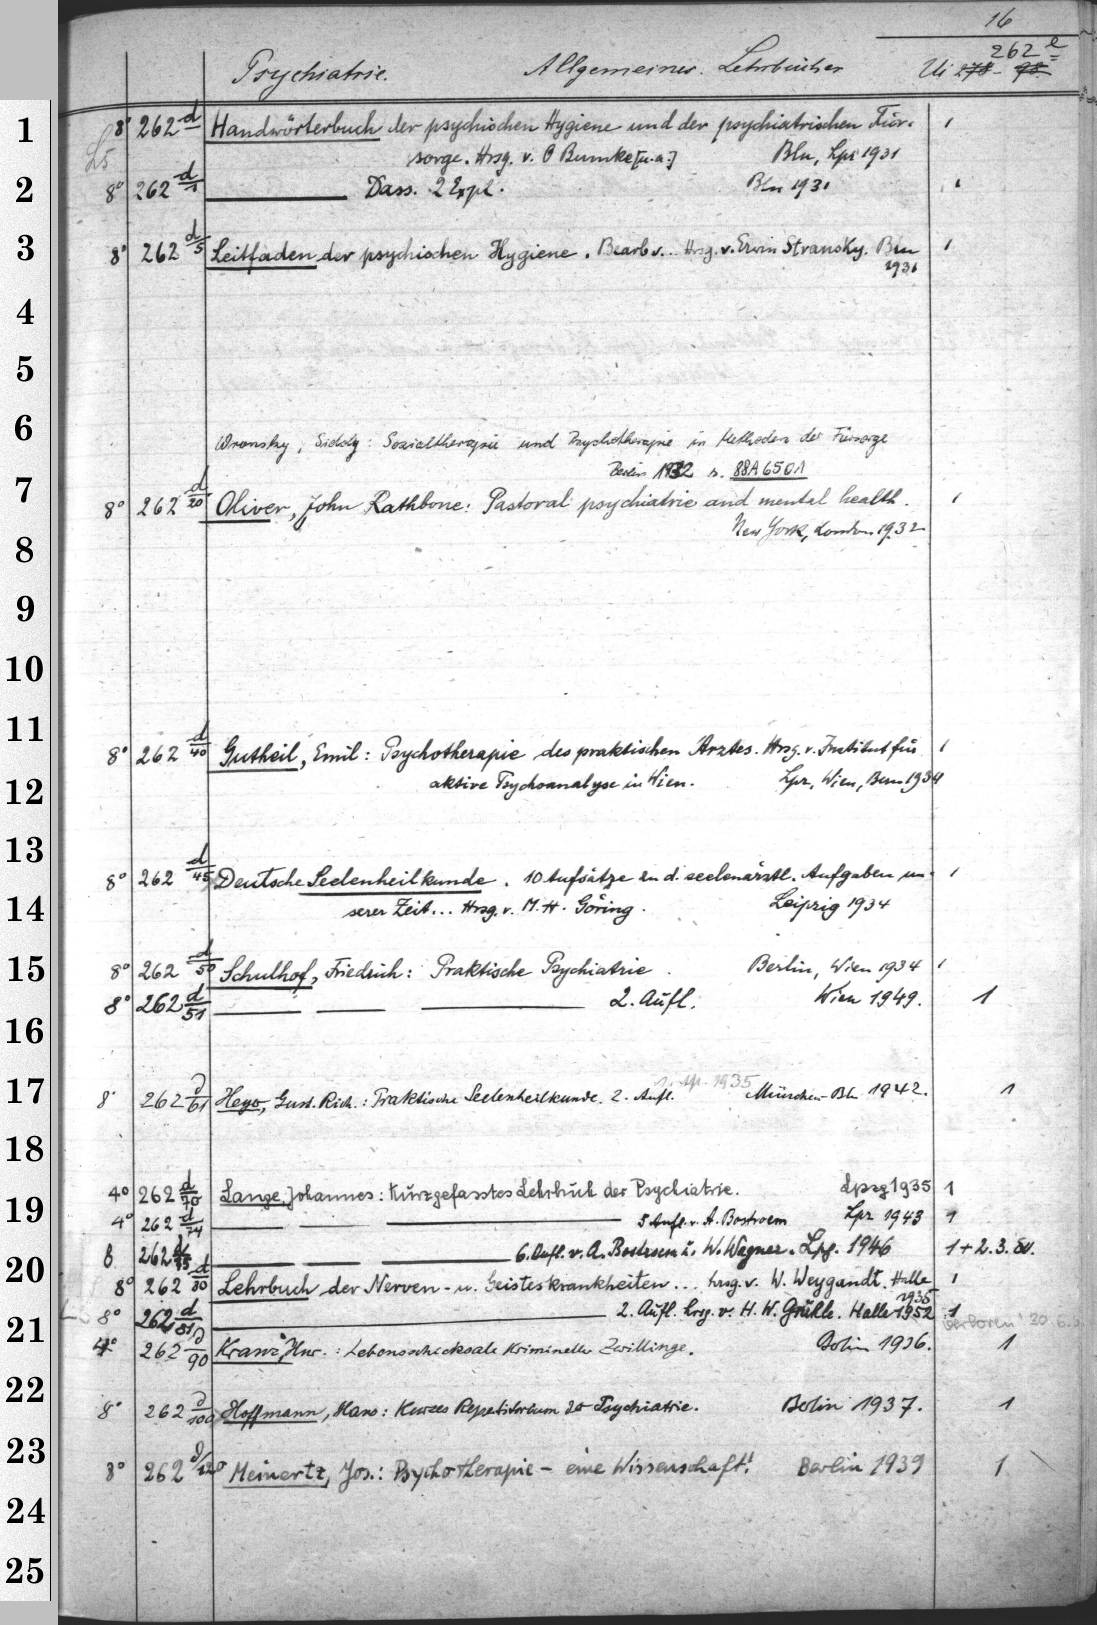 16
Psychiatrie. Allgemeines. Lehrbücher Ui 278 - 98 262 e
1 8° 262 d Handwörterbuch der psychischen Hygiene und der psychiatrischen Für-
sorge. Hrsg. v. O Bumke [u.a.] Bln, Lpz 1931 1
2 8° 262 d/1 ——— Dass. 2 Expl. Bln 1931 1
3 8° 262 d/5 Leitfaden der psychischen Hygiene. Bearb v... Hrsg. v. Erwin Stransky. Bln 1
1931
4
5
6 Wronsky, : Sozialtherapie und Psychotherapie in Methoden der Fürsorge
Berlin 1932 s. 88A6501
7 8° 262 d/20 Oliver, John Rathbone: Pastoral psychiatrie and mental health. 1
New York, London 1932
8
9
10
11 8° 262 d/40 Gutheil, Emil: Psychotherapie des praktischen Arztes. Hrsg. v. Institut für 1
12 aktive Psychoanalyse in Wien. Lpz, Wien, Bern 1934
13 8° 262 d/45 Deutsche Seelenheilkunde. 10 Aufsätze zu d. seelenärztl. Aufgaben un- 1
14 serer Zeit... Hrsg. v. M. H. Göring. Leipzig 1934
15 8° 262 d/50 Schulhof, Friedrich: Praktische Psychiatrie. Berlin, Wien 1934 1
8° 262 d/51 ——— ——— ——— 2. Aufl. Wien 1949. 1
16
1935
17 8° 262 d/61 Heyer, Gust. Rich.: Praktische Seelenheilkunde. 2. Aufl. München-Bln 1942. 1
18
4° 262 d/70 Lange, Johannes: Kurzgefasstes Lehrbuch der Psychiatrie. Lpzg 1935 1
19 4° 262 d/74 ——— ——— ——— 5 Aufl. v. A. Bostroem Lpz 1943 1
8 262 d/75 ——— ——— ——— 6. Aufl. v. A. Bostroem u. W. Wagner. Lpg. 1946 1+2.3. Ex.
20 8° 262 d/80 Lehrbuch der Nerven- u. Geisteskrankheiten... hrsg. v. W. Weygandt. Halle 1
1935
8° 262 d/81 ——— 2. Aufl. hrsg. v. H. W. Gruhle. Halle 1952 1
verloren 20.6.
21 4° 262 d/90 Kranz, Hnr.: Lebensschicksale Krimineller Zwillinge. Berlin 1936. 1
22 8° 262 d/100 Hoffmann, Hans: Kurzes Repetitorium der Psychiatrie. Berlin 1937. 1
23 8° 262 d/120 Meinertz, Jos.: Psychotherapie - eine Wissenschaft! Berlin 1939 1
24
25